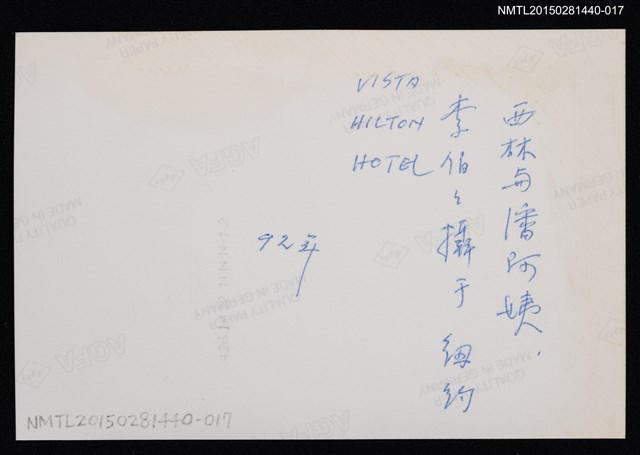 NMTL20150281440-017
西林与潘阿姨.
李伯々攝于 纽约
VISTA
HILTON
HOTEL
92年
NMTL20150281440-017
AGFA
QUALITY PAPER
MADE IN GERMANY